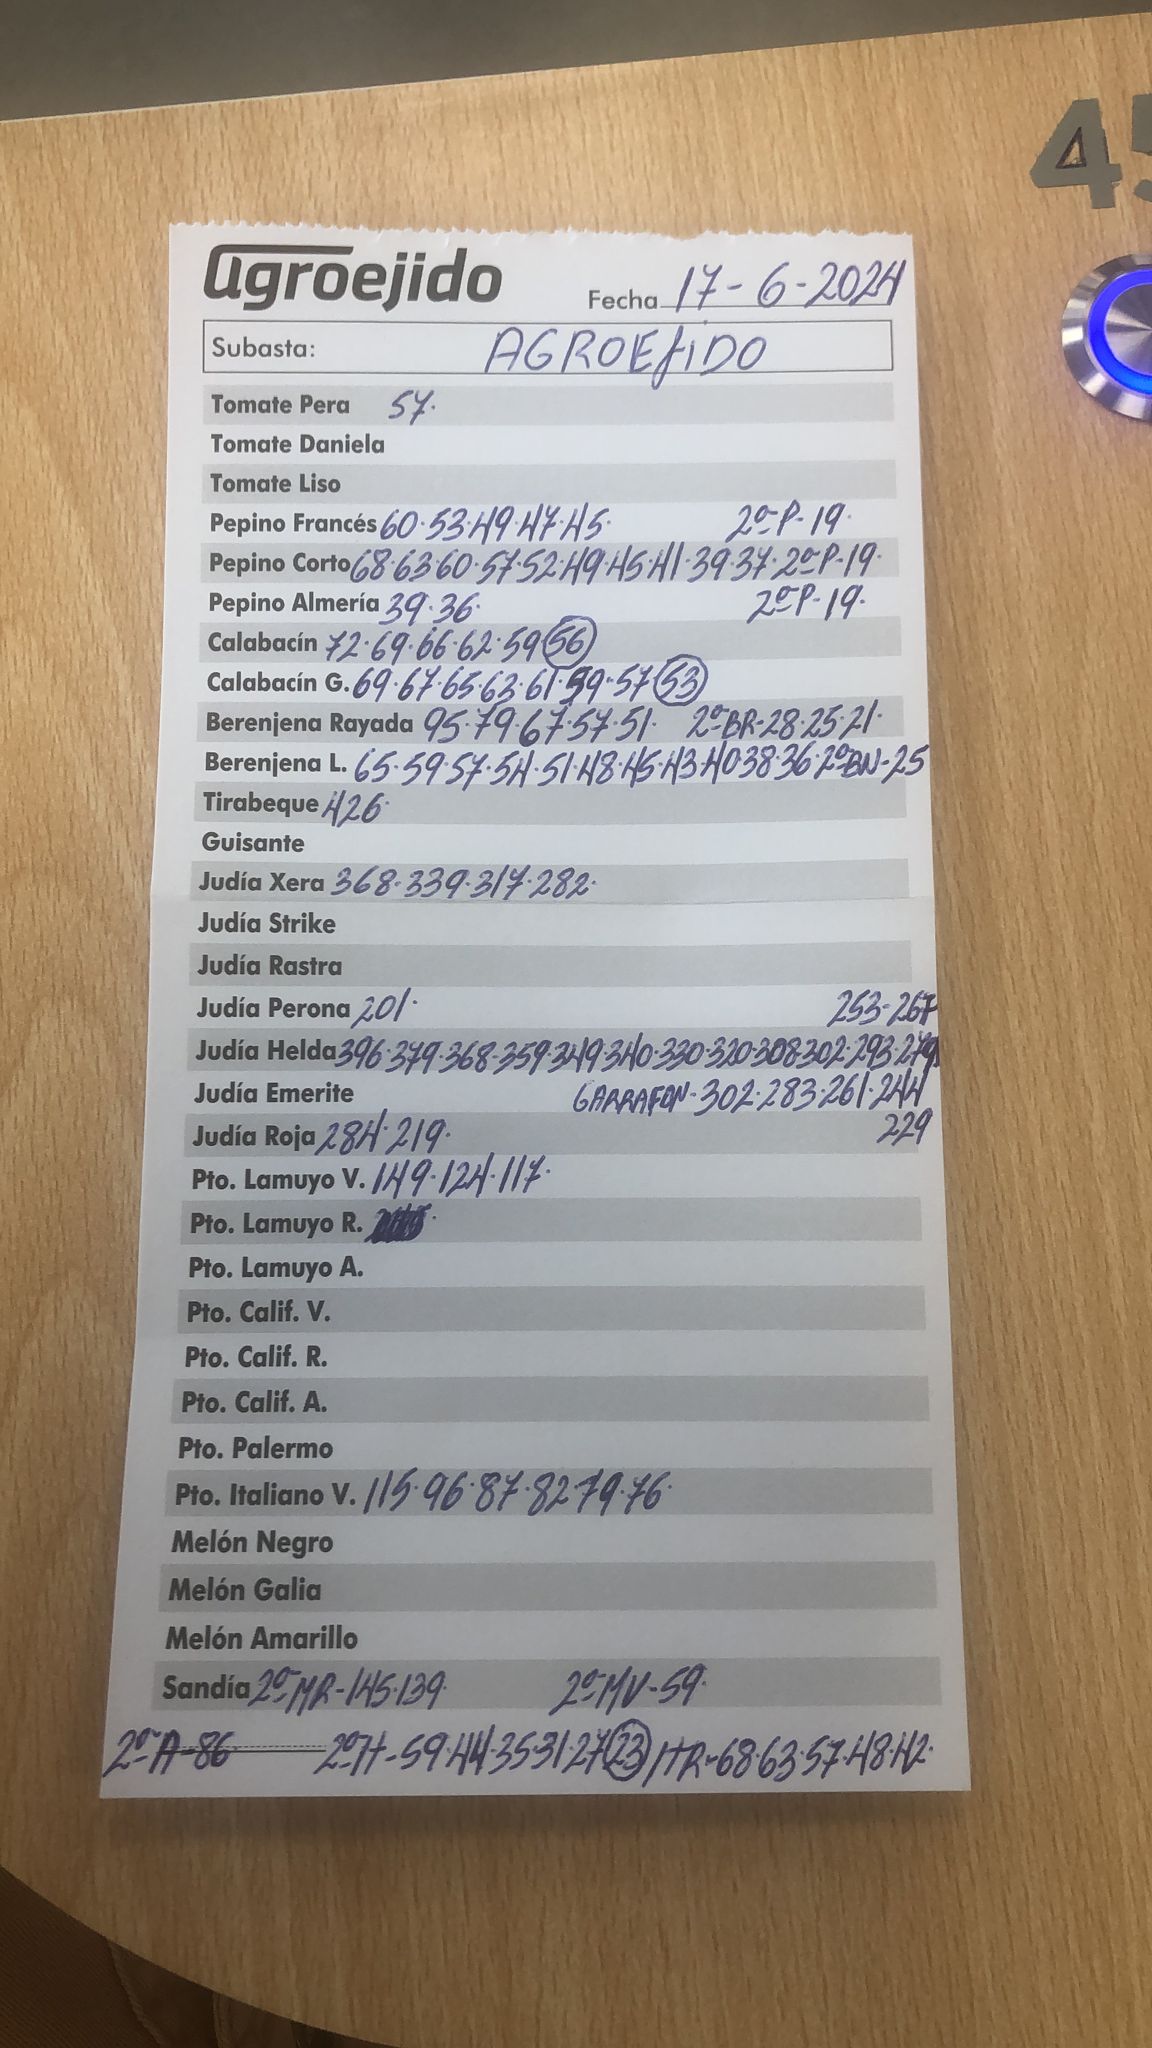 45
agroejido
Fecha 17-6-2024
Subasta: AGROEJIDO
Tomate Pera 57.
Tomate Daniela
Tomate Liso
Pepino Francés 60.53.49.47.45. 2ª P-19.
Pepino Corto 68.63.60.57.52.49.45.41.39.37.2ª P-19.
Pepino Almería 39.36. 2ª P-19.
Calabacín 72.69.66.62.59.56
Calabacín G. 69.67.65.63.61.59.57.53
Berenjena Rayada 95.79.67.57.51. 2ª BR-28.25.21.
Berenjena L. 65.59.57.54.51.48.45.43.40.38.36.2ª BN-25
Tirabeque 426.
Guisante
Judía Xera 368.339.317.282.
Judía Strike
Judía Rastra
Judía Perona 201. 253-267
Judía Helda 396.379.368.359.349.340.330.320.308.302.293.279
Judía Emerite GARRAFON-302.283.261.244
Judía Roja 284.219. 229
Pto. Lamuyo V. 149.124.117.
Pto. Lamuyo R.
Pto. Lamuyo A.
Pto. Calif. V.
Pto. Calif. R.
Pto. Calif. A.
Pto. Palermo
Pto. Italiano V. 115.96.87.82.79.76.
Melón Negro
Melón Galia
Melón Amarillo
Sandía 2ª MR-145.139 2ª MV-59.
2ª A-86 2ª H-59.44.35.31.27.23 ITR-68.63.57.48.42.